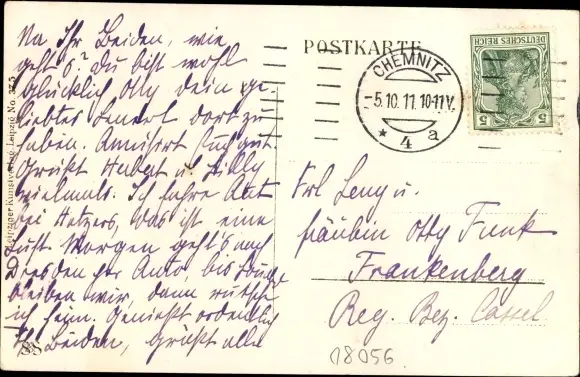 Na Ihr Beiden, wie
geht's? Du bist wohl
glücklich Otty dein ge
liebtes Lenerl dort zu
haben. Amüsirt Euch gut
Grüßt Hubert u. Lilly
vielmals. Ich fahre Akt
bei Hetzers, das ist eine
Lust. Morgen geht's nach
Dresden per Auto, bis
bleiben wir, dann rutsche
ich heim. Genießt ordentlich
Ihr Beiden, Grüßt alle
Leipziger Kunstverlag Leipzig No. 375
POSTKARTE
CHEMNITZ
-5.10.11.10-11V.
* 4 a
DEUTSCHES REICH
5 5
Frl Leny u.
Fräulein Otty Funk
Frankenberg
Reg. Bez. Cassel
08056